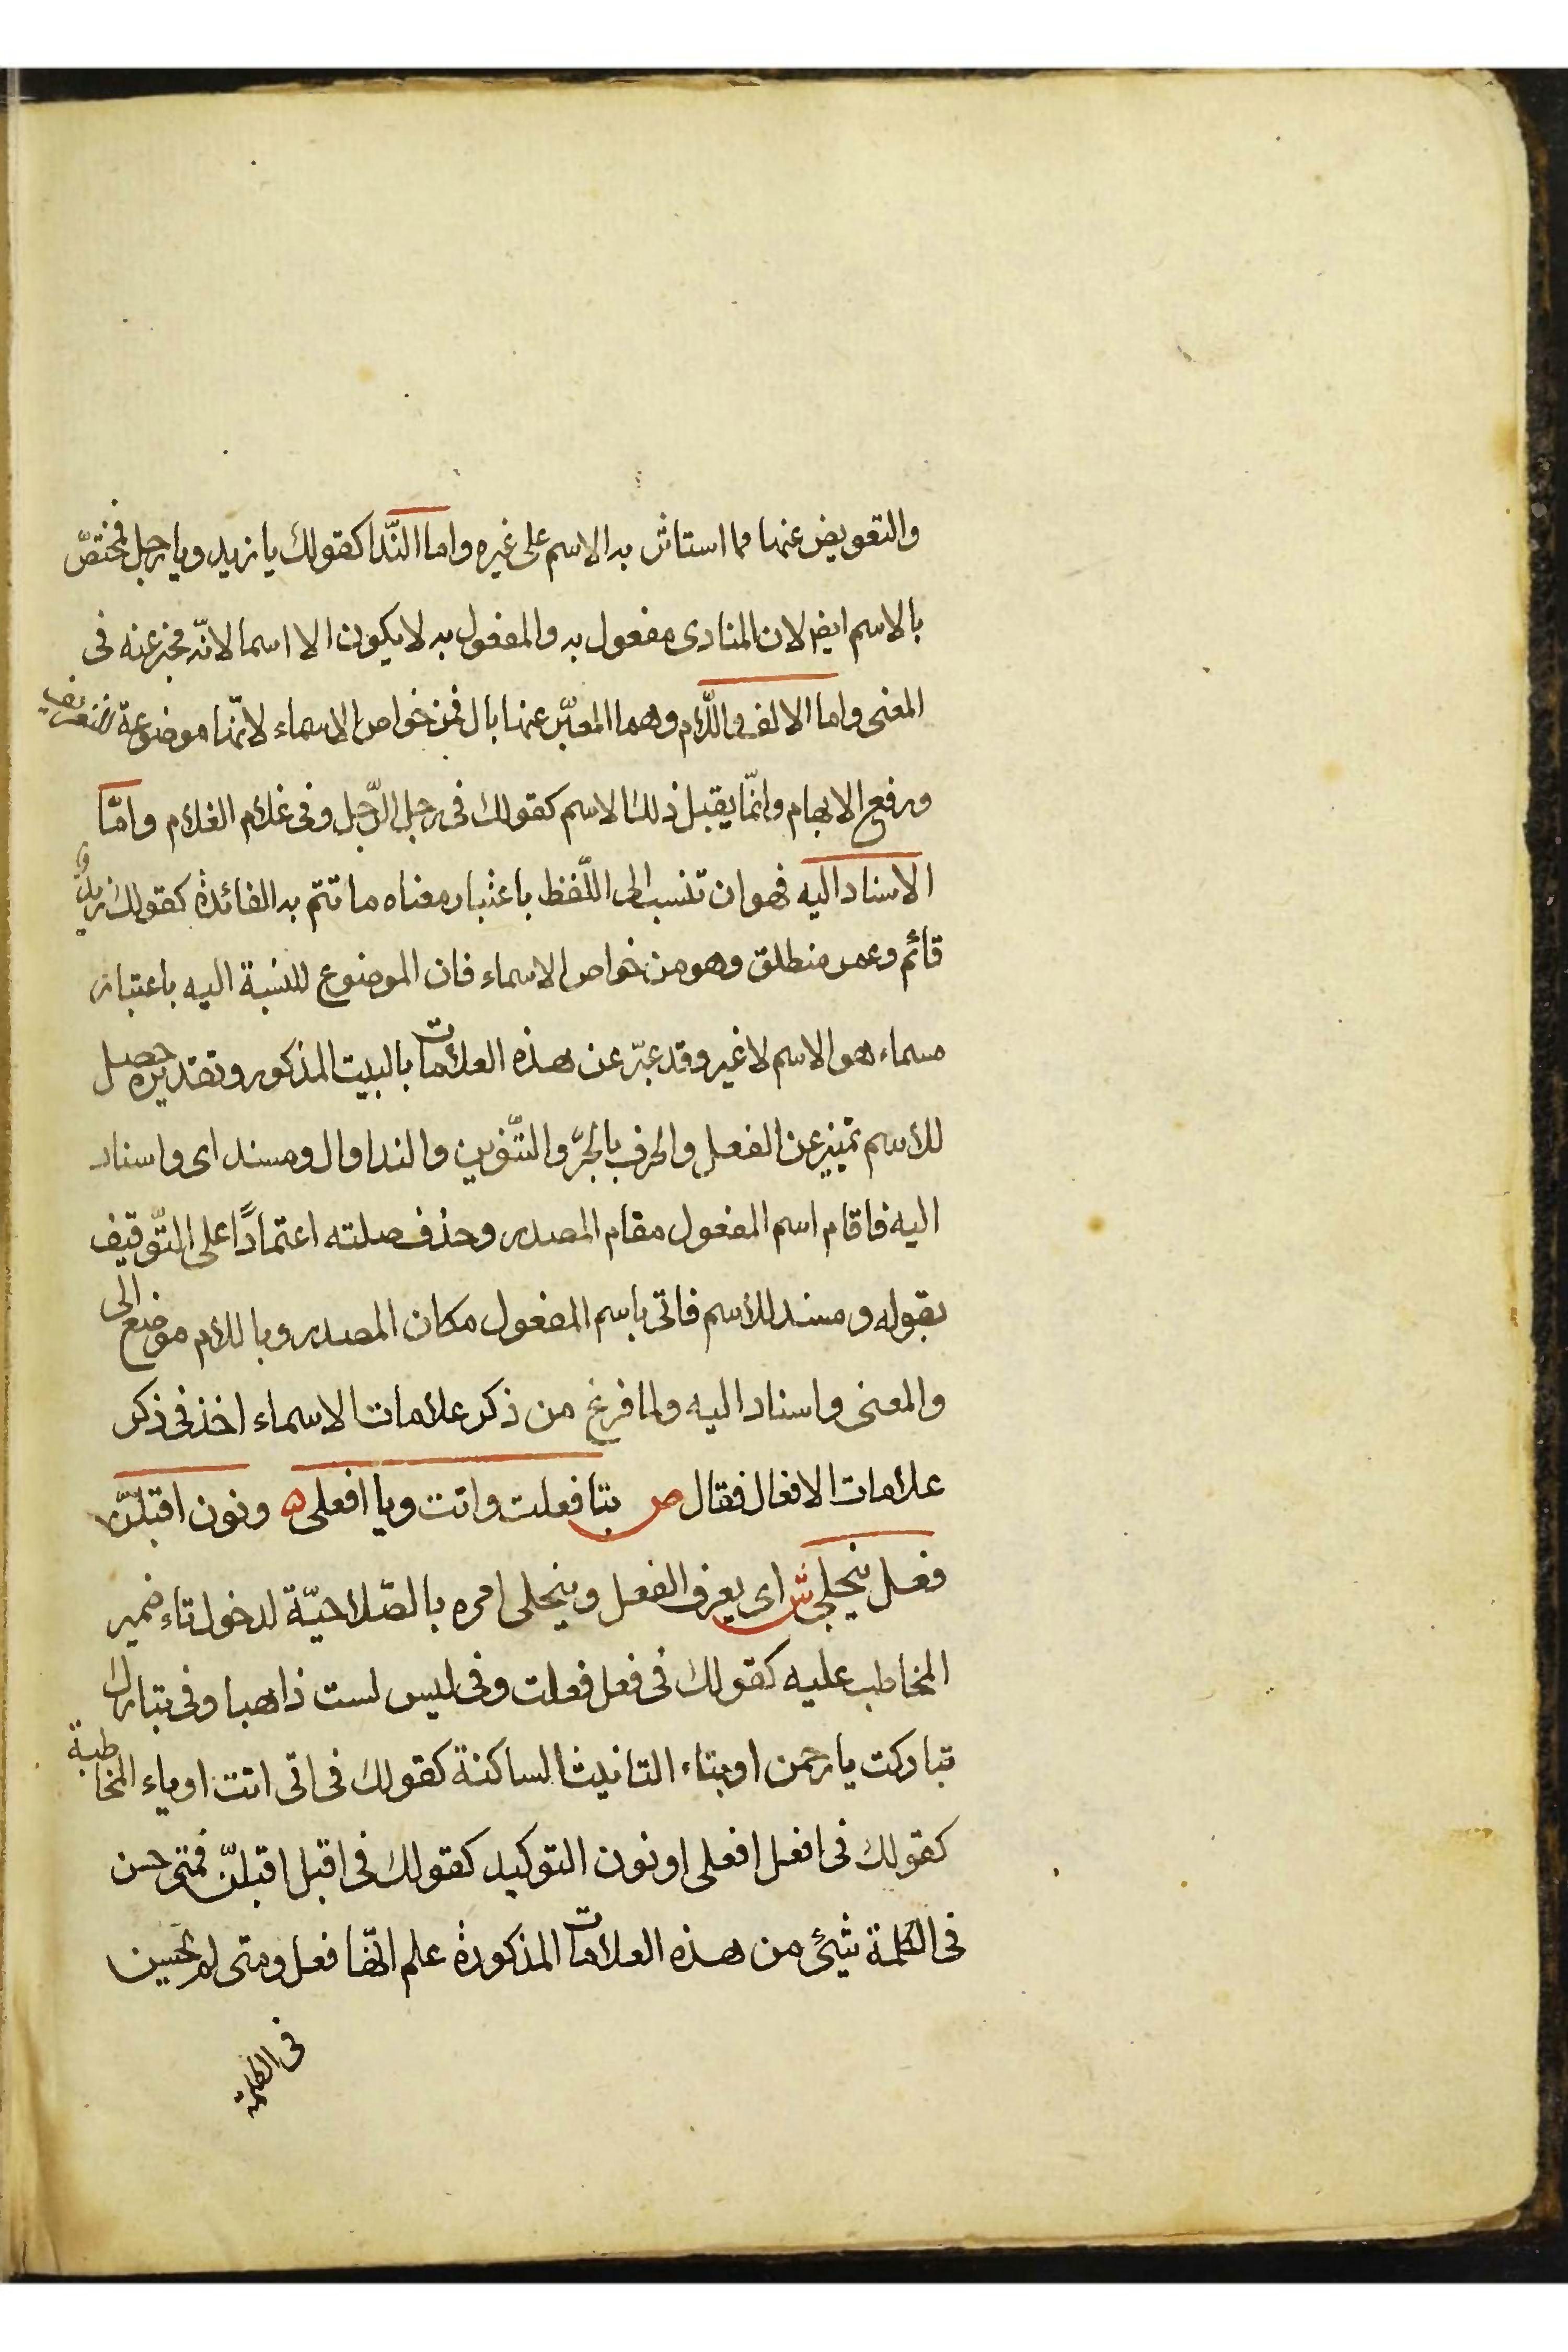 والتعويض عنها مما استاثر به الاسم على غيره واما النّدا كقولك يا زيد ويا رجل فمختصّ
بالاسم ايضا لان المنادى مفعول به والمفعول به لا يكون الا اسما لانّه مخبر عنه فى
المعنى واما الالف واللّام وهما المعبّر عنها بال فمن خواص الاسماء لانّها موضوعة للتعريف
ورفع الابهام وانّما يقبل ذلك الاسم كقولك فى رجل الرّجل وفى غلام الغلام وامّا
الاسناد اليه فهو ان تنسب الى اللّفظ باعتبار معناه ما تتم به الفائدة كقولك زيدٌ
قائم وعمر منطلق وهو من خواص الاسماء فان الموضوع للنسبة اليه باعتبار
مسماه هو الاسم لا غير وقد عبّر عن هذه العلامات بالبيت المذكور وتقديره حصل
للاسم تمييز عن الفعل والحرف بالجرّ والتّنوين والندا وال ومسند اى واسناد
اليه فاقام اسم المفعول مقام المصدر وحذف صلته اعتمادًا على التّوقيف
بقوله ومسند للاسم فاتى باسم المفعول مكان المصدر وباللام موضع الى
والمعنى واسناد اليه ولما فرغ من ذكر علامات الاسماء اخذ فى ذكر
علامات الافعال فقال ص بتا فعلت واتت ويا افعلى ه ونون اقبلنّ
فعل ينجلى ش اى يعرف الفعل وينجلى امره بالصّلاحيّة لدخول تاء ضمير
المخاطب عليه كقولك فى فعل فعلت وفى ليس لست ذاهبا وفى تبارك
تباركت يا رحمن او بتاء التانيث الساكنة كقولك فى اتى اتت او ياء المخاطبة
كقولك فى افعل افعلى او نون التوكيد كقولك فى اقبل اقبلنّ فمتى حسن
فى الكلمة شيئ من هذه العلامات المذكورة علم انّها فعل ومتى لم تحسن
فى الكلمة